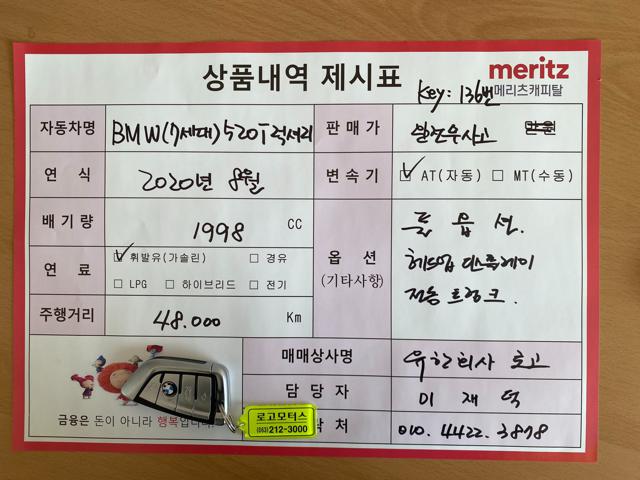 상품내역 제시표
meritz
메리츠캐피탈
Key: 136번
자동차명 BMW(7세대) 520i 럭셔리
판매가 만원
연 식 2020년 8월
변속기 AT(자동) MT(수동)
배기량 1998 CC
옵 션
(기타사항)
풀 옵 션.
헤드업 디스플레이
전동 트렁크.
연 료 휘발유(가솔린) 경유
LPG 하이브리드 전기
주행거리 48.000 Km
매매상사명 유한회사 로고
담 당 자 이 재 덕
락 처 010. 4422. 3878
BMW
로고모터스
(063)212-3000
금융은 돈이 아니라 행복입니다